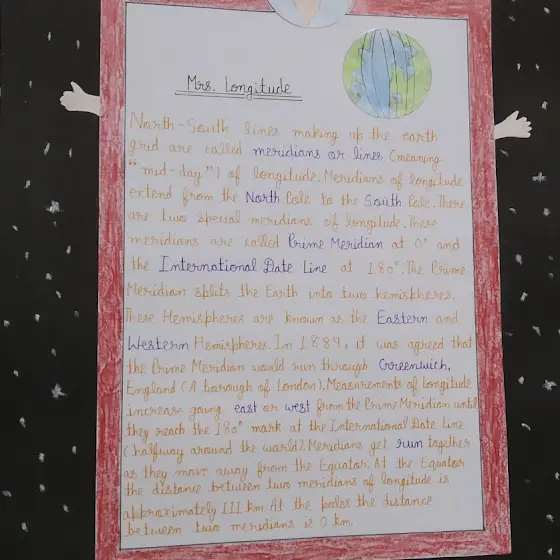 Mrs. Longitude
North-South lines making up the earth
grid are called meridians or lines (meaning
"mid-day") of longitude. Meridians of longitude
extend from the North Pole to the South Pole. There
are two special meridians of longitude. These
meridians are called Prime Meridian at 0° and
the International Date Line at 180°. The Prime
Meridian splits the Earth into two hemispheres.
These Hemispheres are known as the Eastern and
Western Hemispheres. In 1884, it was agreed that
the Prime Meridian would run through Greenwich,
England (A borough of London). Measurements of longitude
increase going east or west from the Prime Meridian until
they reach the 180° mark at the International Date Line
(halfway around the world). Meridians get run together
as they move away from the Equator. At the Equator
the distance between two meridians of longitude is
approximately 111 km. At the poles the distance
between two meridians is 0 km.